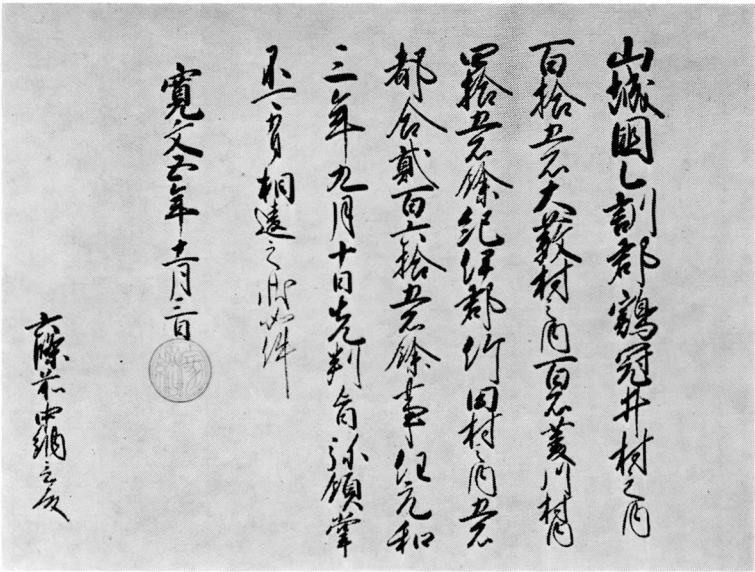 山城国乙訓郡鶏冠井村之内
百拾五石大藪村之内百石菱川村内
四拾五石餘紀伊郡竹田村之内五石
都合貳百六拾五石餘事任元和
三年九月十日先判旨弥領掌
不可有相違之状如件
寛文五年十一月三日
六條前中納言殿